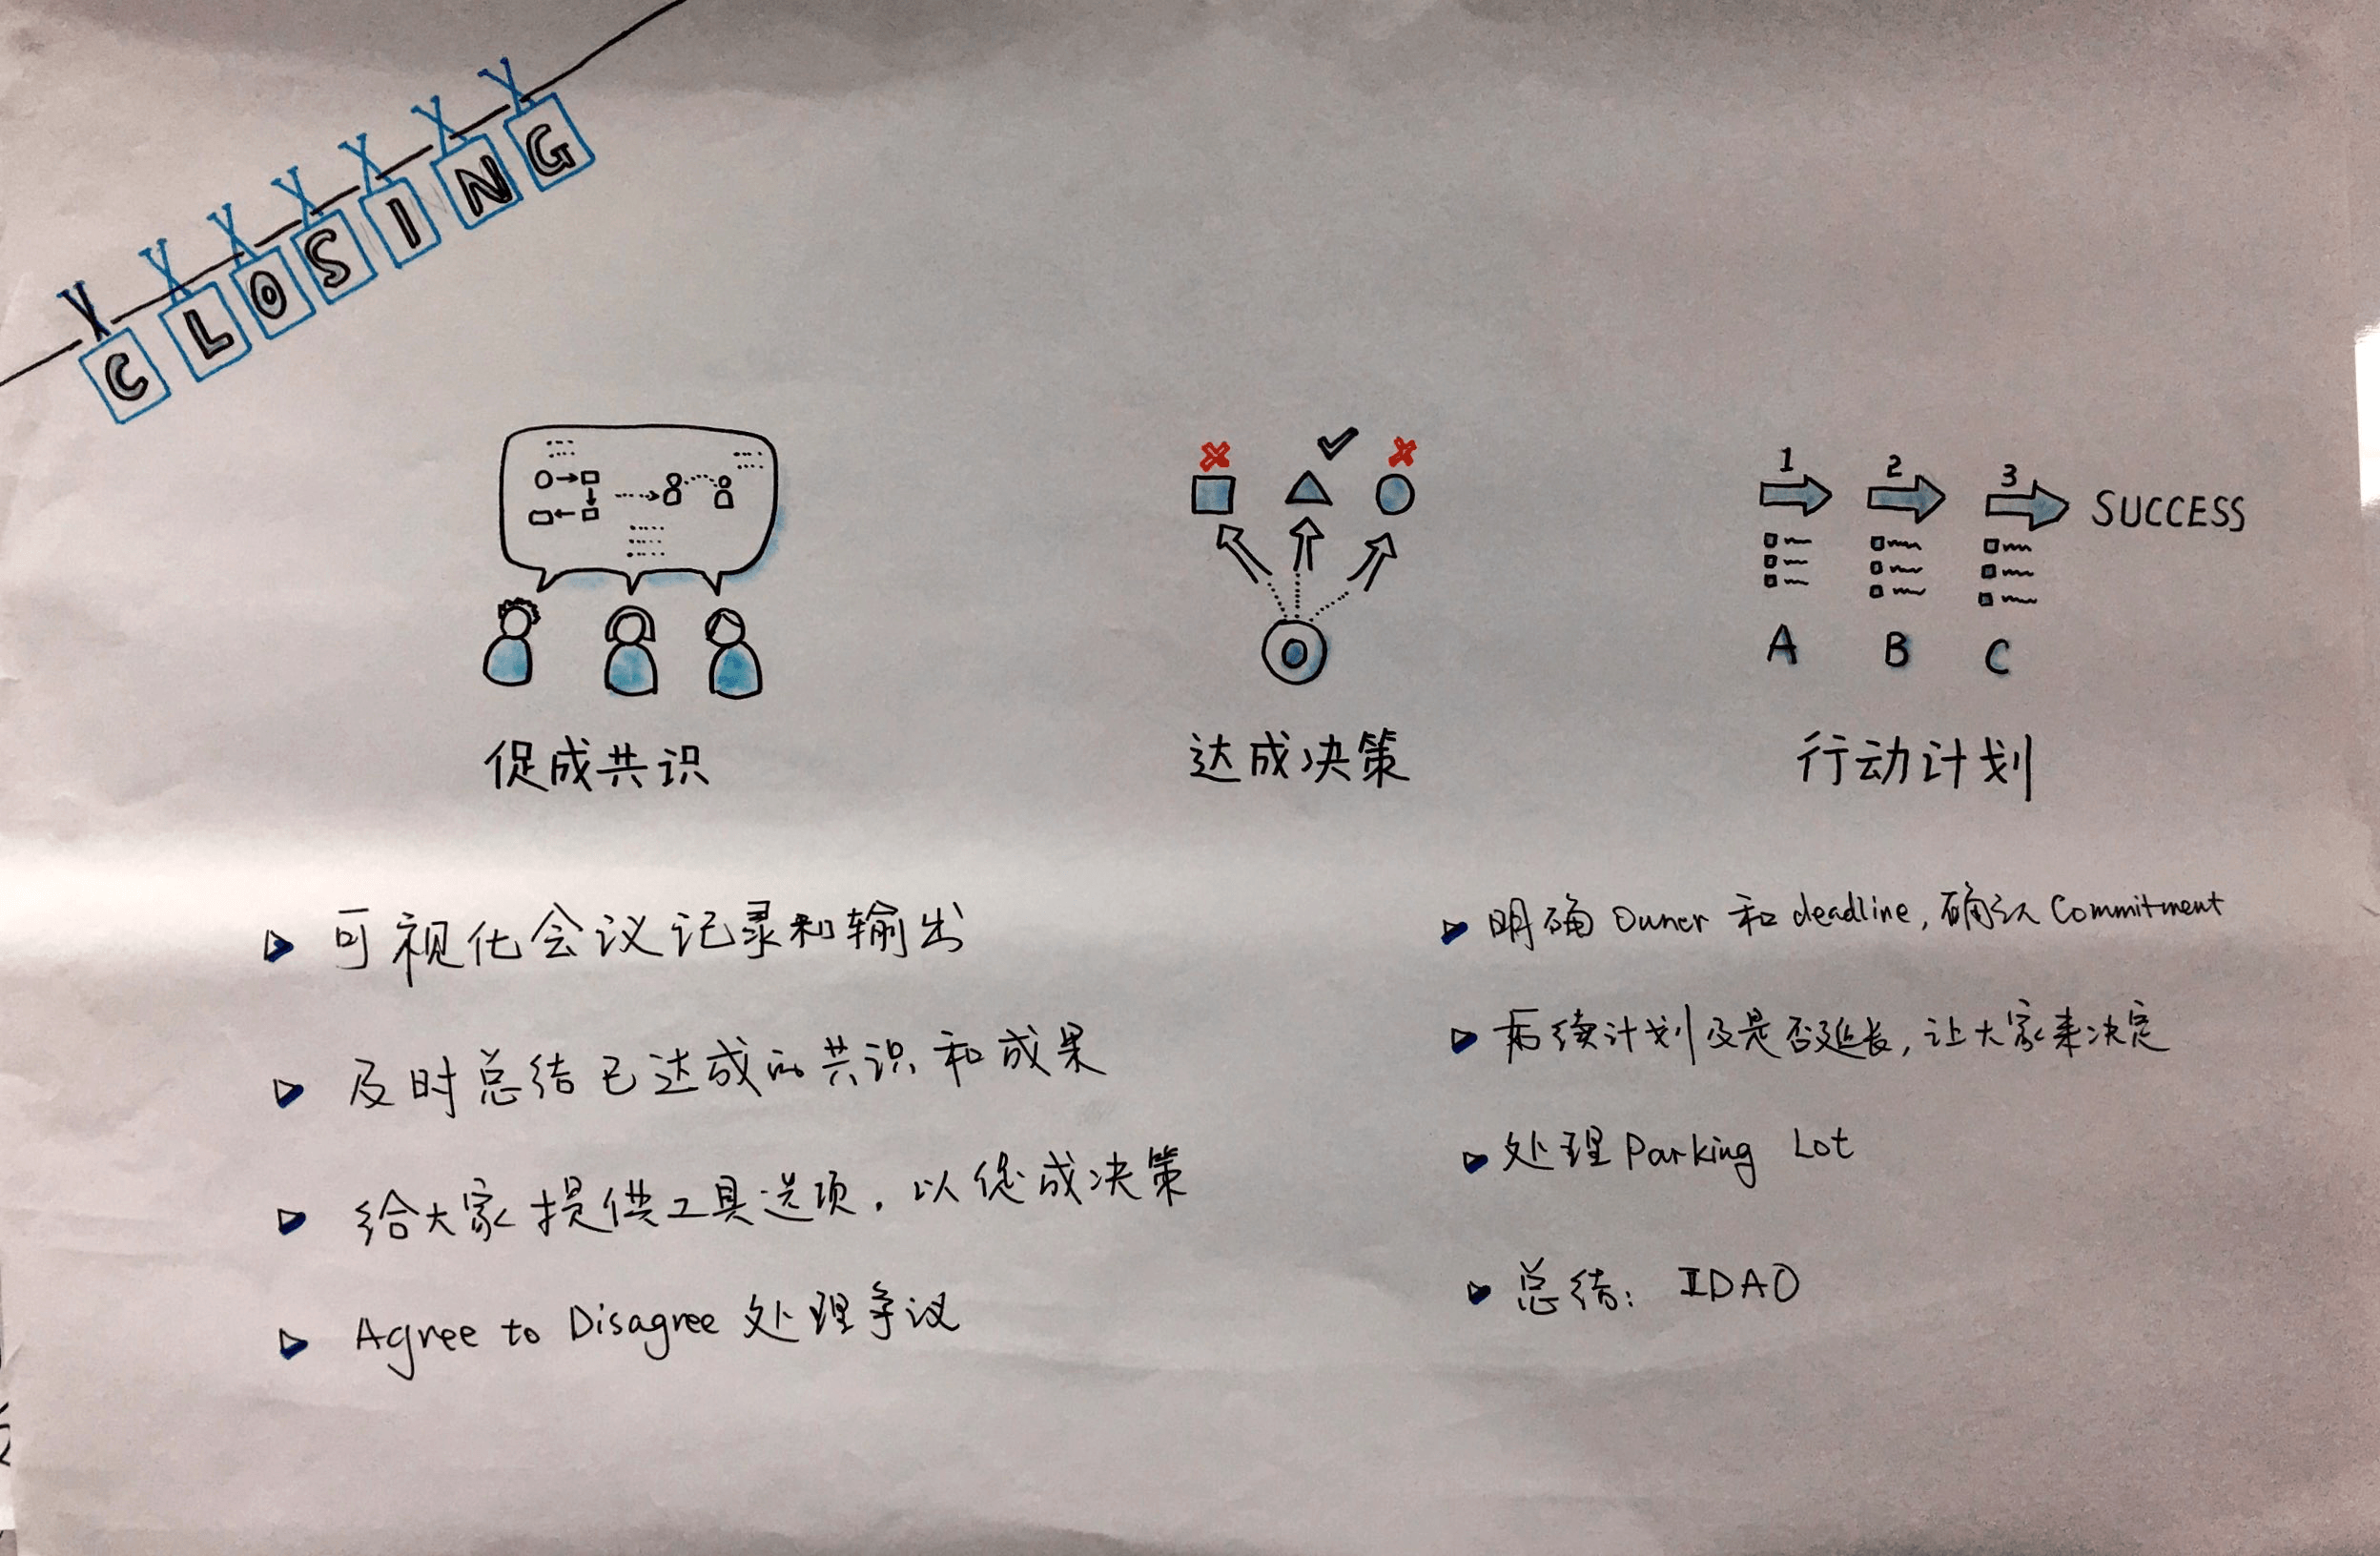 CLOSING
1 2 3 SUCCESS
A B C
促成共识 达成决策 行动计划
可视化会议记录和输出
及时总结已达成的共识和成果
给大家提供工具选项,以促成决策
Agree to Disagree 处理争议
明确 Owner 和 deadline,确认 Commitment
后续计划及是否延长,让大家来决定
处理 Parking Lot
总结: IDAO